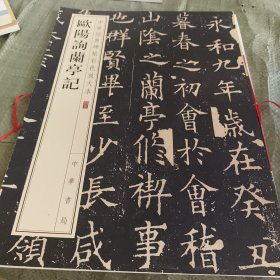 永和九年歲在癸
暮春之初會於會稽
山陰之蘭亭脩禊事
也群賢畢至少長咸
領
歐陽詢蘭亭記
中華書局